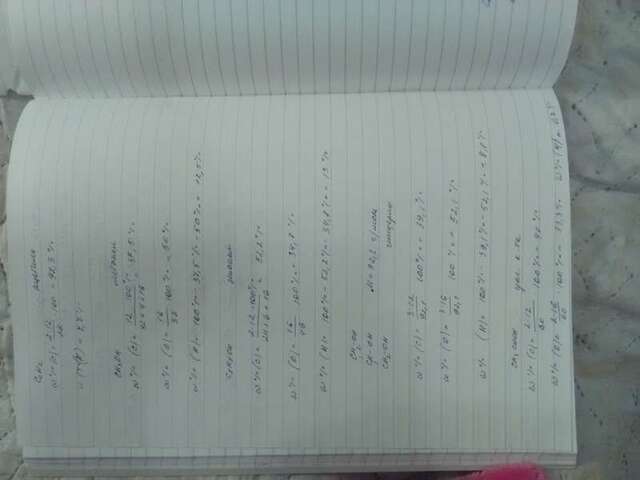 C₂H₂ ацетилен
ω%(C) = 2·12/26 · 100 = 92,3%
ω%(H) = 7,7%
CH₃OH метанол
ω%(C) = 12·100%/12+4+16 = 37,5%
ω%(O) = 16/32 · 100% = 50%
ω%(H) = 100% - 37,5% - 50% = 12,5%
C₂H₅OH этанол
ω%(C) = 2·12·100%/24+6+16 = 52,2%
ω%(O) = 16/46 · 100% = 34,8%
ω%(H) = 100% - 52,2% - 34,8% = 13%
CH₂-OH
CH-OH M = 92,1 г/моль
CH₂-OH глицерин
ω%(C) = 3·12/92,1 · 100% = 39,1%
ω%(O) = 3·16/92,1 · 100% = 52,1%
ω%(H) = 100% - 39,1% - 52,1% = 8,8%
CH₃COOH укс. к-та
ω%(C) = 2·12/60 · 100% = 40%
ω%(O) = 2·16/60 · 100% = 53,3% ω%(H) =